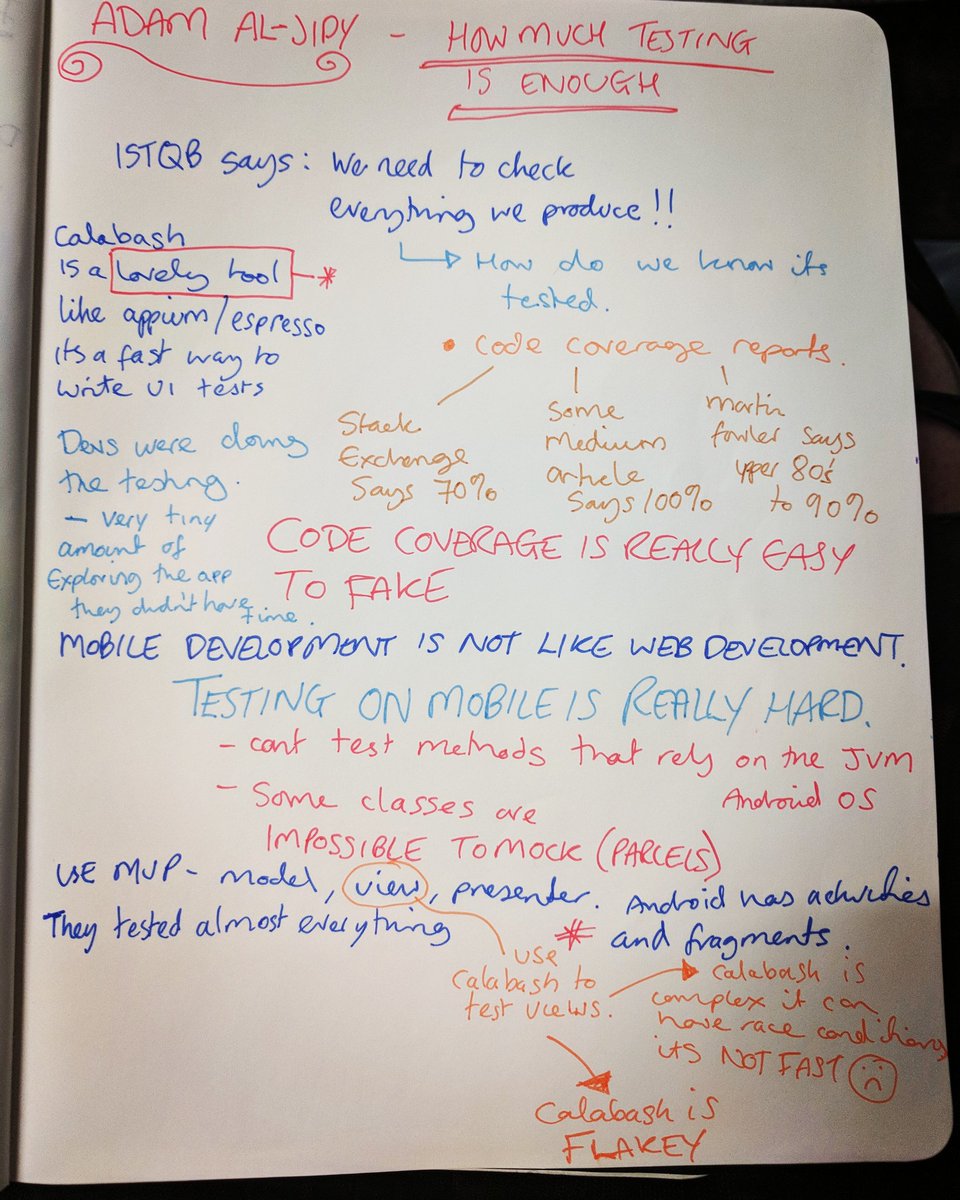 ADAM AL-JIPY - HOW MUCH TESTING
IS ENOUGH
ISTQB says: We need to check
everything we produce!!
How do we know its
tested.
Calabash
is a lovely tool *
like appium/espresso
its a fast way to
write UI tests
• Code coverage reports.
Stack
Exchange
Says 70%
Some
Medium
article
Says 100%
martin
fowler says
upper 80's
to 90%
Devs were doing
the testing.
- very tiny
amount of
Exploring the app
they didn't have time.
CODE COVERAGE IS REALLY EASY
TO FAKE
MOBILE DEVELOPMENT IS NOT LIKE WEB DEVELOPMENT.
TESTING ON MOBILE IS REALLY HARD.
- cant test methods that rely on the JVM
Android OS
- Some classes are
IMPOSSIBLE TO MOCK (PARCELS)
USE MVP- model, view, presenter. Android has activities
and fragments.
They tested almost everything
*
use
Calabash to
test views.
Calabash is
complex it can
have race conditions
its NOT FAST
Calabash is
FLAKEY